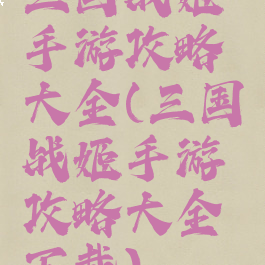 三国战姬
手游攻略
大全(三国
战姬手游
攻略大全
下载)